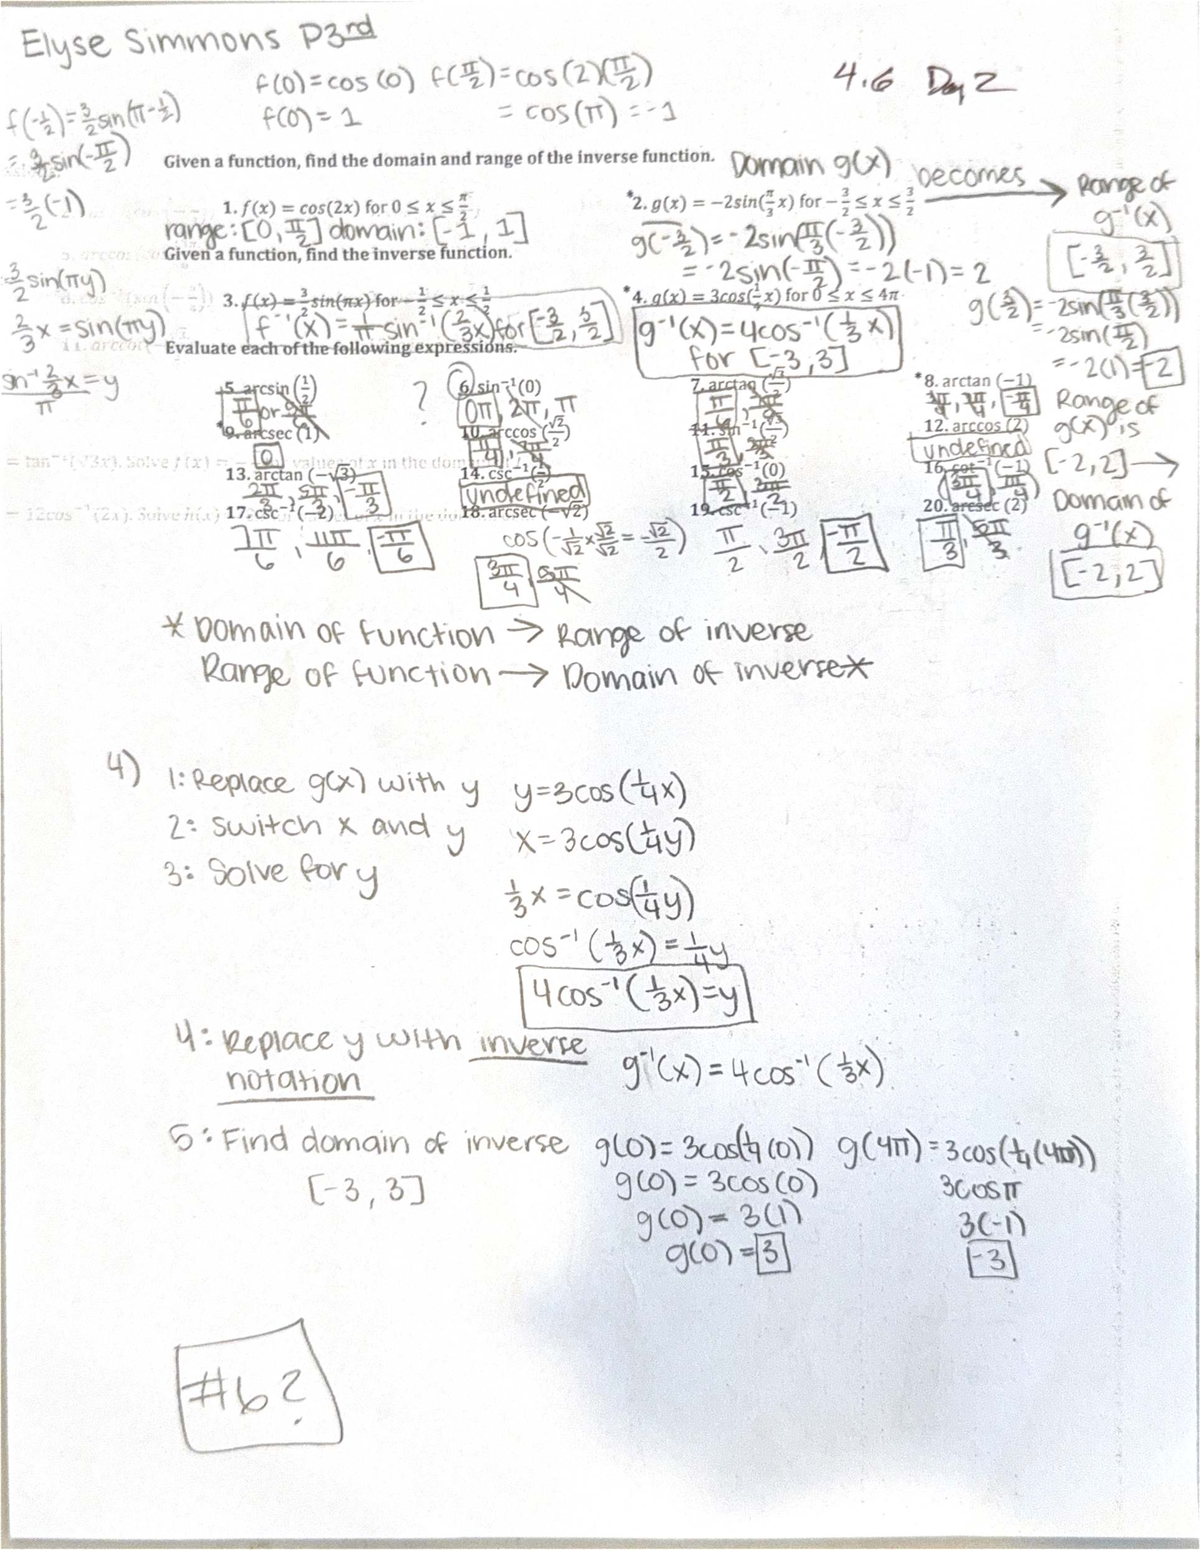 Elyse Simmons P3rd
4.6 Day 2
f(0)=cos(0) f(π/2)=cos(2)(π/2)
f(0)=1 = cos(π) = -1
f(-1/2)=3/2 sin(π-1/2)
= 3/2 sin(-π/2)
= 3/2 (-1)
Given a function, find the domain and range of the inverse function.
Domain g(x) becomes → Range of g⁻¹(x)
[-3/2, 3/2]
1. f(x) = cos(2x) for 0 ≤ x ≤ π/2
range: [0, π/2] domain: [-1, 1]
*2. g(x) = −2sin(π/3 x) for −3/2 ≤ x ≤ 3/2
g(-3/2) = -2sin(π/3(-3/2))
= -2sin(-π/2) = -2(-1) = 2
g(3/2) = -2sin(π/3(3/2))
= -2sin(π/2)
= -2(1) = -2
Range of g(x) is [-2,2] →
Domain of g⁻¹(x)
[-2,2]
Given a function, find the inverse function.
3/2 sin(πy)
2/3 x = sin(πy)
sin⁻¹ 2/3 x = y
π
3. f(x) = 3/2 sin(πx) for −1/2 ≤ x ≤ 1/2
f⁻¹(x) = 1/π sin⁻¹(2/3 x) for [-3/2, 3/2]
*4. g(x) = 3cos(1/4 x) for 0 ≤ x ≤ 4π
g⁻¹(x) = 4cos⁻¹(1/3 x)
for [-3,3]
Evaluate each of the following expressions.
5. arcsin(1/2)
π/6 or
?
6. sin⁻¹(0)
0π, 2π, π
7. arctan
π/6
*8. arctan (−1)
-π/4
*9. arcsec (1)
0
10. arccos (√2/2)
π/4
11. sin⁻¹
π/3
12. arccos (2)
undefined
13. arctan (−√3)
2π/3, 5π/3, -π/3
14. csc⁻¹
undefined
15. cos⁻¹(0)
π/2, 3π/2
16. cot⁻¹(−1)
3π/4
17. csc⁻¹(−2)
7π/6, 11π/6, -π/6
18. arcsec (−√2)
cos(-1/√2 × √2/√2 = -√2/2)
3π/4, 5π/4
19. csc⁻¹(−1)
π/2, 3π/2, -π/2
20. arcsec (2)
π/3, 5π/3
* Domain of function → Range of inverse
Range of function → Domain of inverse*
4) 1: Replace g(x) with y y=3cos(1/4x)
2: Switch x and y x=3cos(1/4y)
3: Solve for y
1/3x = cos(1/4y)
cos⁻¹(1/3x) = 1/4y
4cos⁻¹(1/3x)=y
4: Replace y with inverse
notation g⁻¹(x) = 4cos⁻¹(1/3x)
5: Find domain of inverse g(0) = 3cos(1/4(0)) g(4π) = 3cos(1/4(4π))
[-3, 3] g(0) = 3cos(0) 3cosπ
g(0) = 3(1) 3(-1)
g(0) = 3 -3
#6?